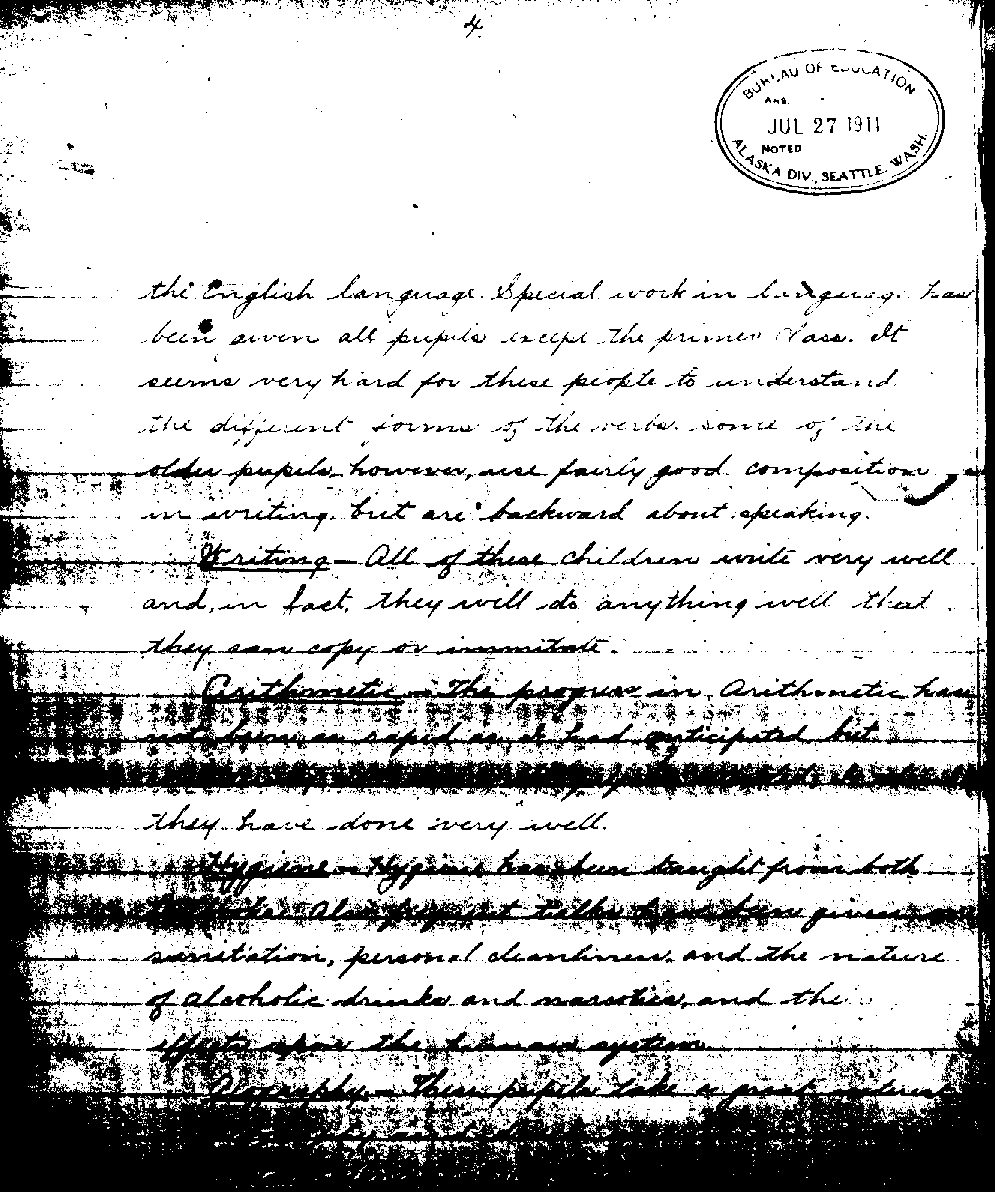 4
BUREAU OF EDUCATION
ANS.
JUL 27 1911
NOTED
ALASKA DIV., SEATTLE, WASH.
the English language. Special work in language has
been given all pupils except the primer class. It
seems very hard for these people to understand
the different forms of the verbs. some of the
older pupils, however, use fairly good composition
in writing. but are backward about speaking.
Writing - All of these children write very well
and, in fact, they will do anything well that
they can copy or immitate.
Arithmetic - The progress in Arithmetic has
not been as rapid as I had anticipated but
they have done very well.
Hygiene - Hygiene has been taught from both
books. Also frequent talks have been given on
sanitation, personal cleanliness, and the nature
of alcoholic drinks and narcotics, and the
effects upon the human system.
Geography - These pupils take a great interest